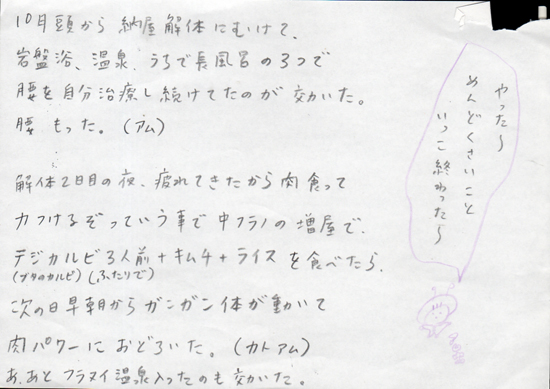 10月頭から 納屋解体にむけて、
岩盤浴、温泉、うちで長風呂の3つで
腰を自分治療し続けてたのが 効いた。
腰 もった。(アム)
解体2日目の夜、疲れてきたから 肉食って
力つけるぞっていう事で 中フラノの 増屋で、
デジカルビ3人前+キムチ+ライス を食べたら、
(ブタのカルビ)(ふたりで)
次の日早朝から ガンガン 体が動いて
肉パワーに おどろいた。(カトアム)
あ、あと フラヌイ温泉入ったのも 効いた。
やった〜
めんどくさいこと
いっこ 終わった〜